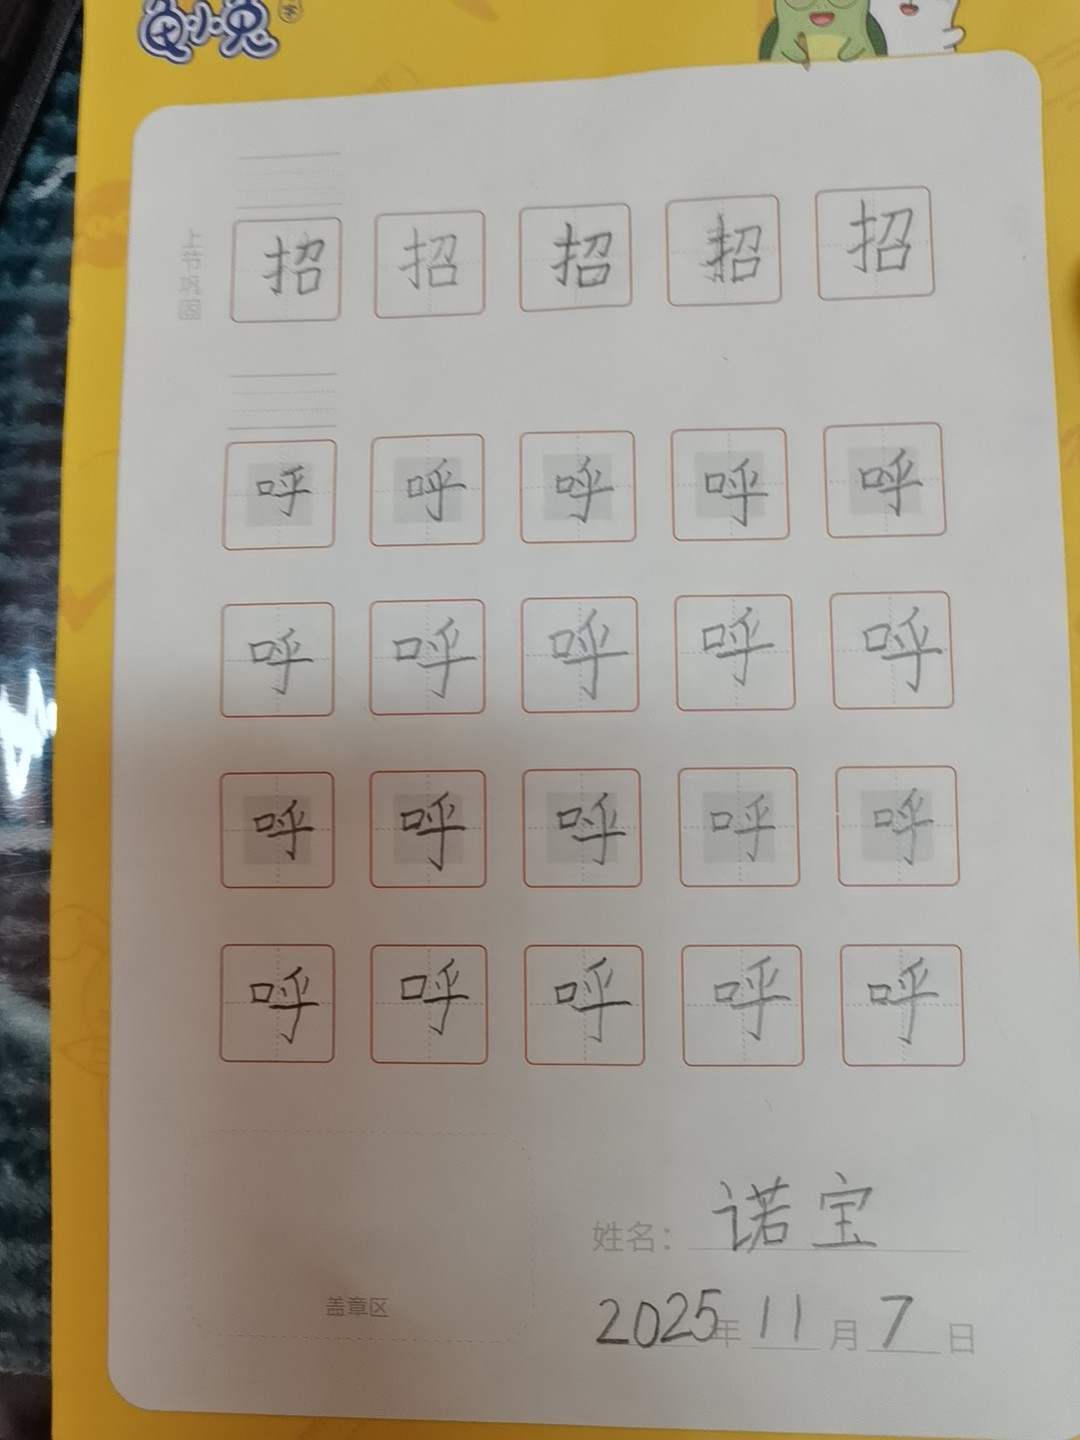 龟小兔
上节巩固
招 招 招 招 招
呼 呼 呼 呼 呼
呼 呼 呼 呼 呼
呼 呼 呼 呼 呼
呼 呼 呼 呼 呼
姓名：诺宝
盖章区
2025年 11 月 7 日